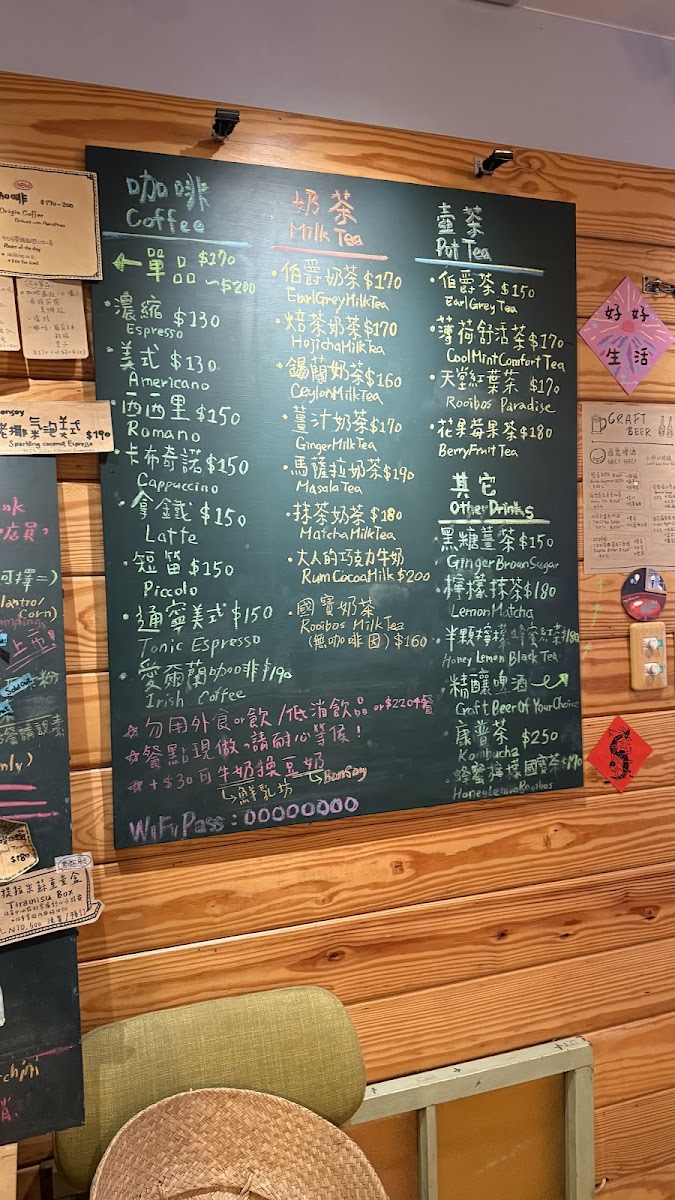 咖啡
Coffee
單品 $170
～$200
濃縮 $130
Espresso
美式 $130
Americano
西西里 $150
Romano
卡布奇諾 $150
Cappuccino
拿鐵 $150
Latte
短笛 $150
Piccolo
通寧美式 $150
Tonic Espresso
愛爾蘭咖啡 $190
Irish Coffee
奶茶
Milk Tea
伯爵奶茶 $170
Earl Grey Milk Tea
焙茶奶茶 $170
Hojicha Milk Tea
錫蘭奶茶 $160
Ceylon Milk Tea
薑汁奶茶 $170
Ginger Milk Tea
馬薩拉奶茶 $190
Masala Tea
抹茶奶茶 $180
Matcha Milk Tea
大人的巧克力牛奶
Rum Cocoa Milk $200
國寶奶茶
Rooibos Milk Tea
(無咖啡因) $160
壺茶
Pot Tea
伯爵茶 $150
Earl Grey Tea
薄荷舒活茶 $170
Cool Mint Comfort Tea
天堂紅葉茶 $170
Rooibos Paradise
花果莓果茶 $180
Berry Fruit Tea
其它
Other Drinks
黑糖薑茶 $150
Ginger Brown Sugar
檸檬抹茶 $180
Lemon Matcha
半顆檸檬蜂蜜紅茶 $180
Honey Lemon Black Tea
精釀啤酒
Craft Beer Of Your Choice
康普茶 $250
Kombucha
蜂蜜檸檬國寶茶 $190
Honey Lemon Rooibos
勿用外食or飲/低消飲品or$220餐
餐點現做，請耐心等候！
+$30可牛奶換豆奶
鮮乳坊 Bonsoy
WiFi Pass：00000000
$170-200
Origin Coffee
氣泡美式 $190
Sparkling coconut Espresso
Tiramisu Box
$180
好好
生活
CRAFT
BEER